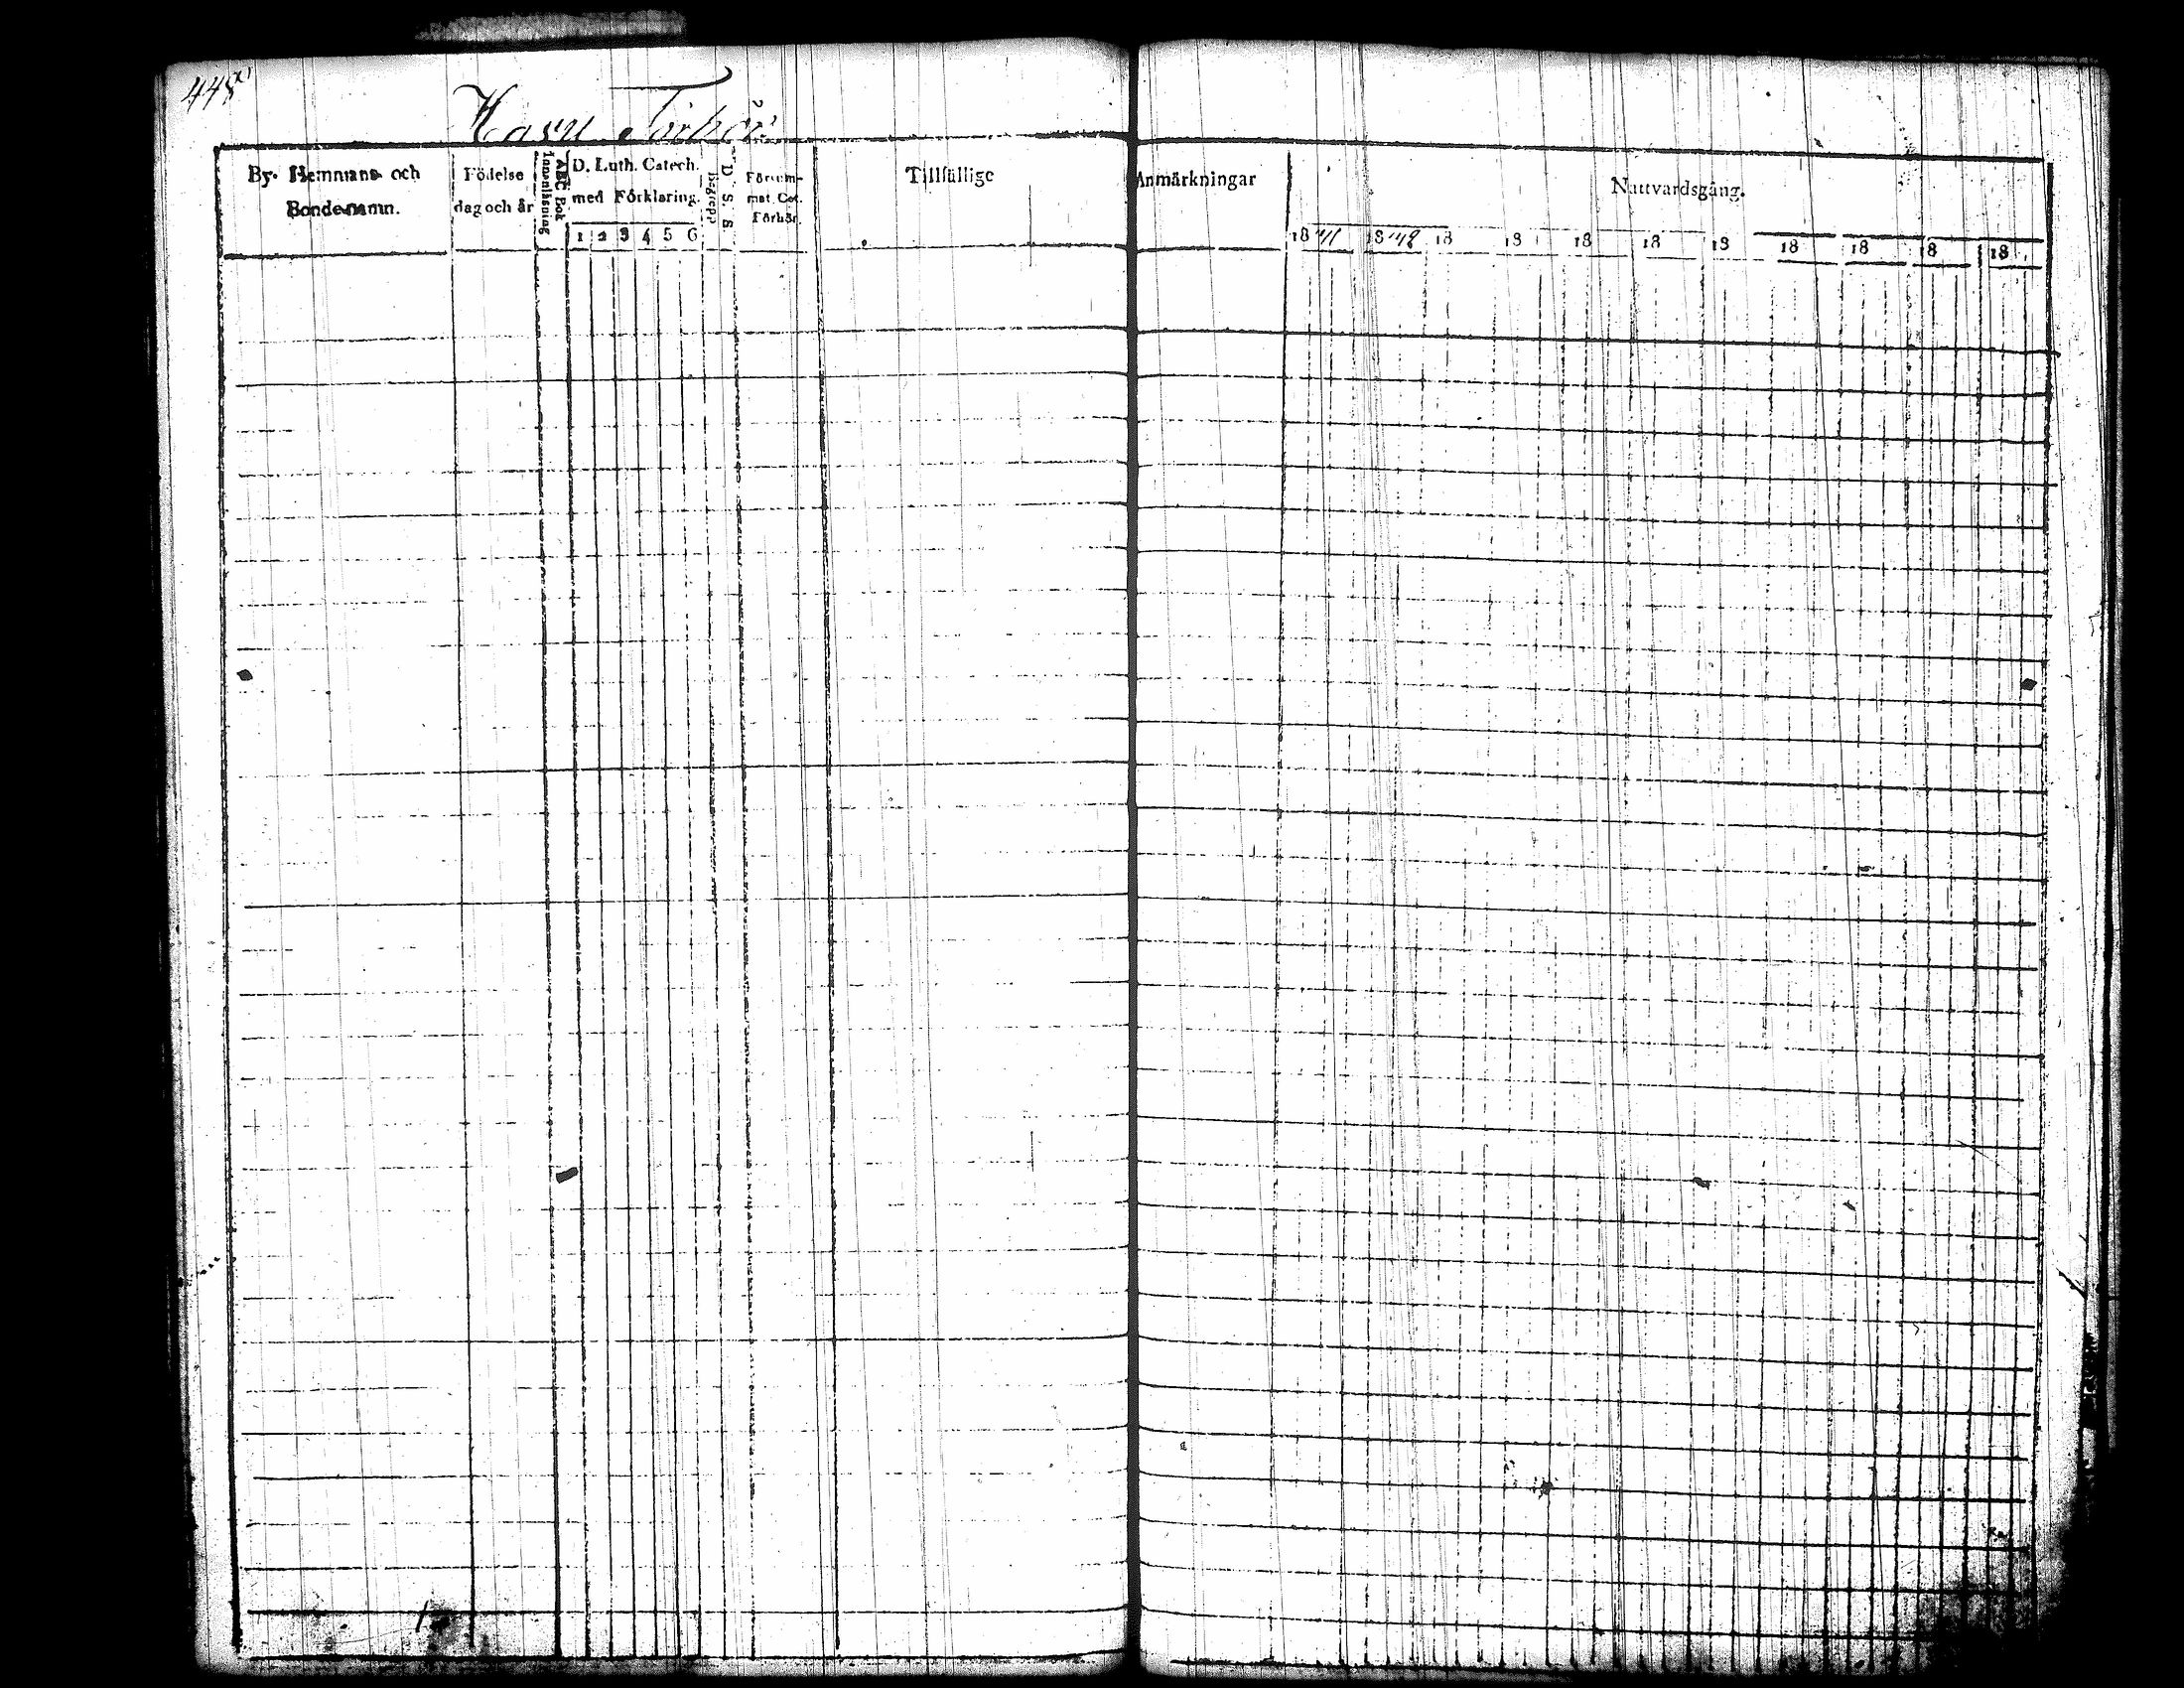 448
By- Hemmans- och
Bonde-namn.
Födelse
dag och år
Innanläsning
ABC Bok
D. Luth. Catech.
med Förklaring.
1 2 3 4 5 6
Begrepp
D. S. B
Försum-
mat. Cat.
Förhör.
Tillfällige
Anmärkningar
Nattvardsgång.
18 18 18 18 18 18 18 18 18 18 18